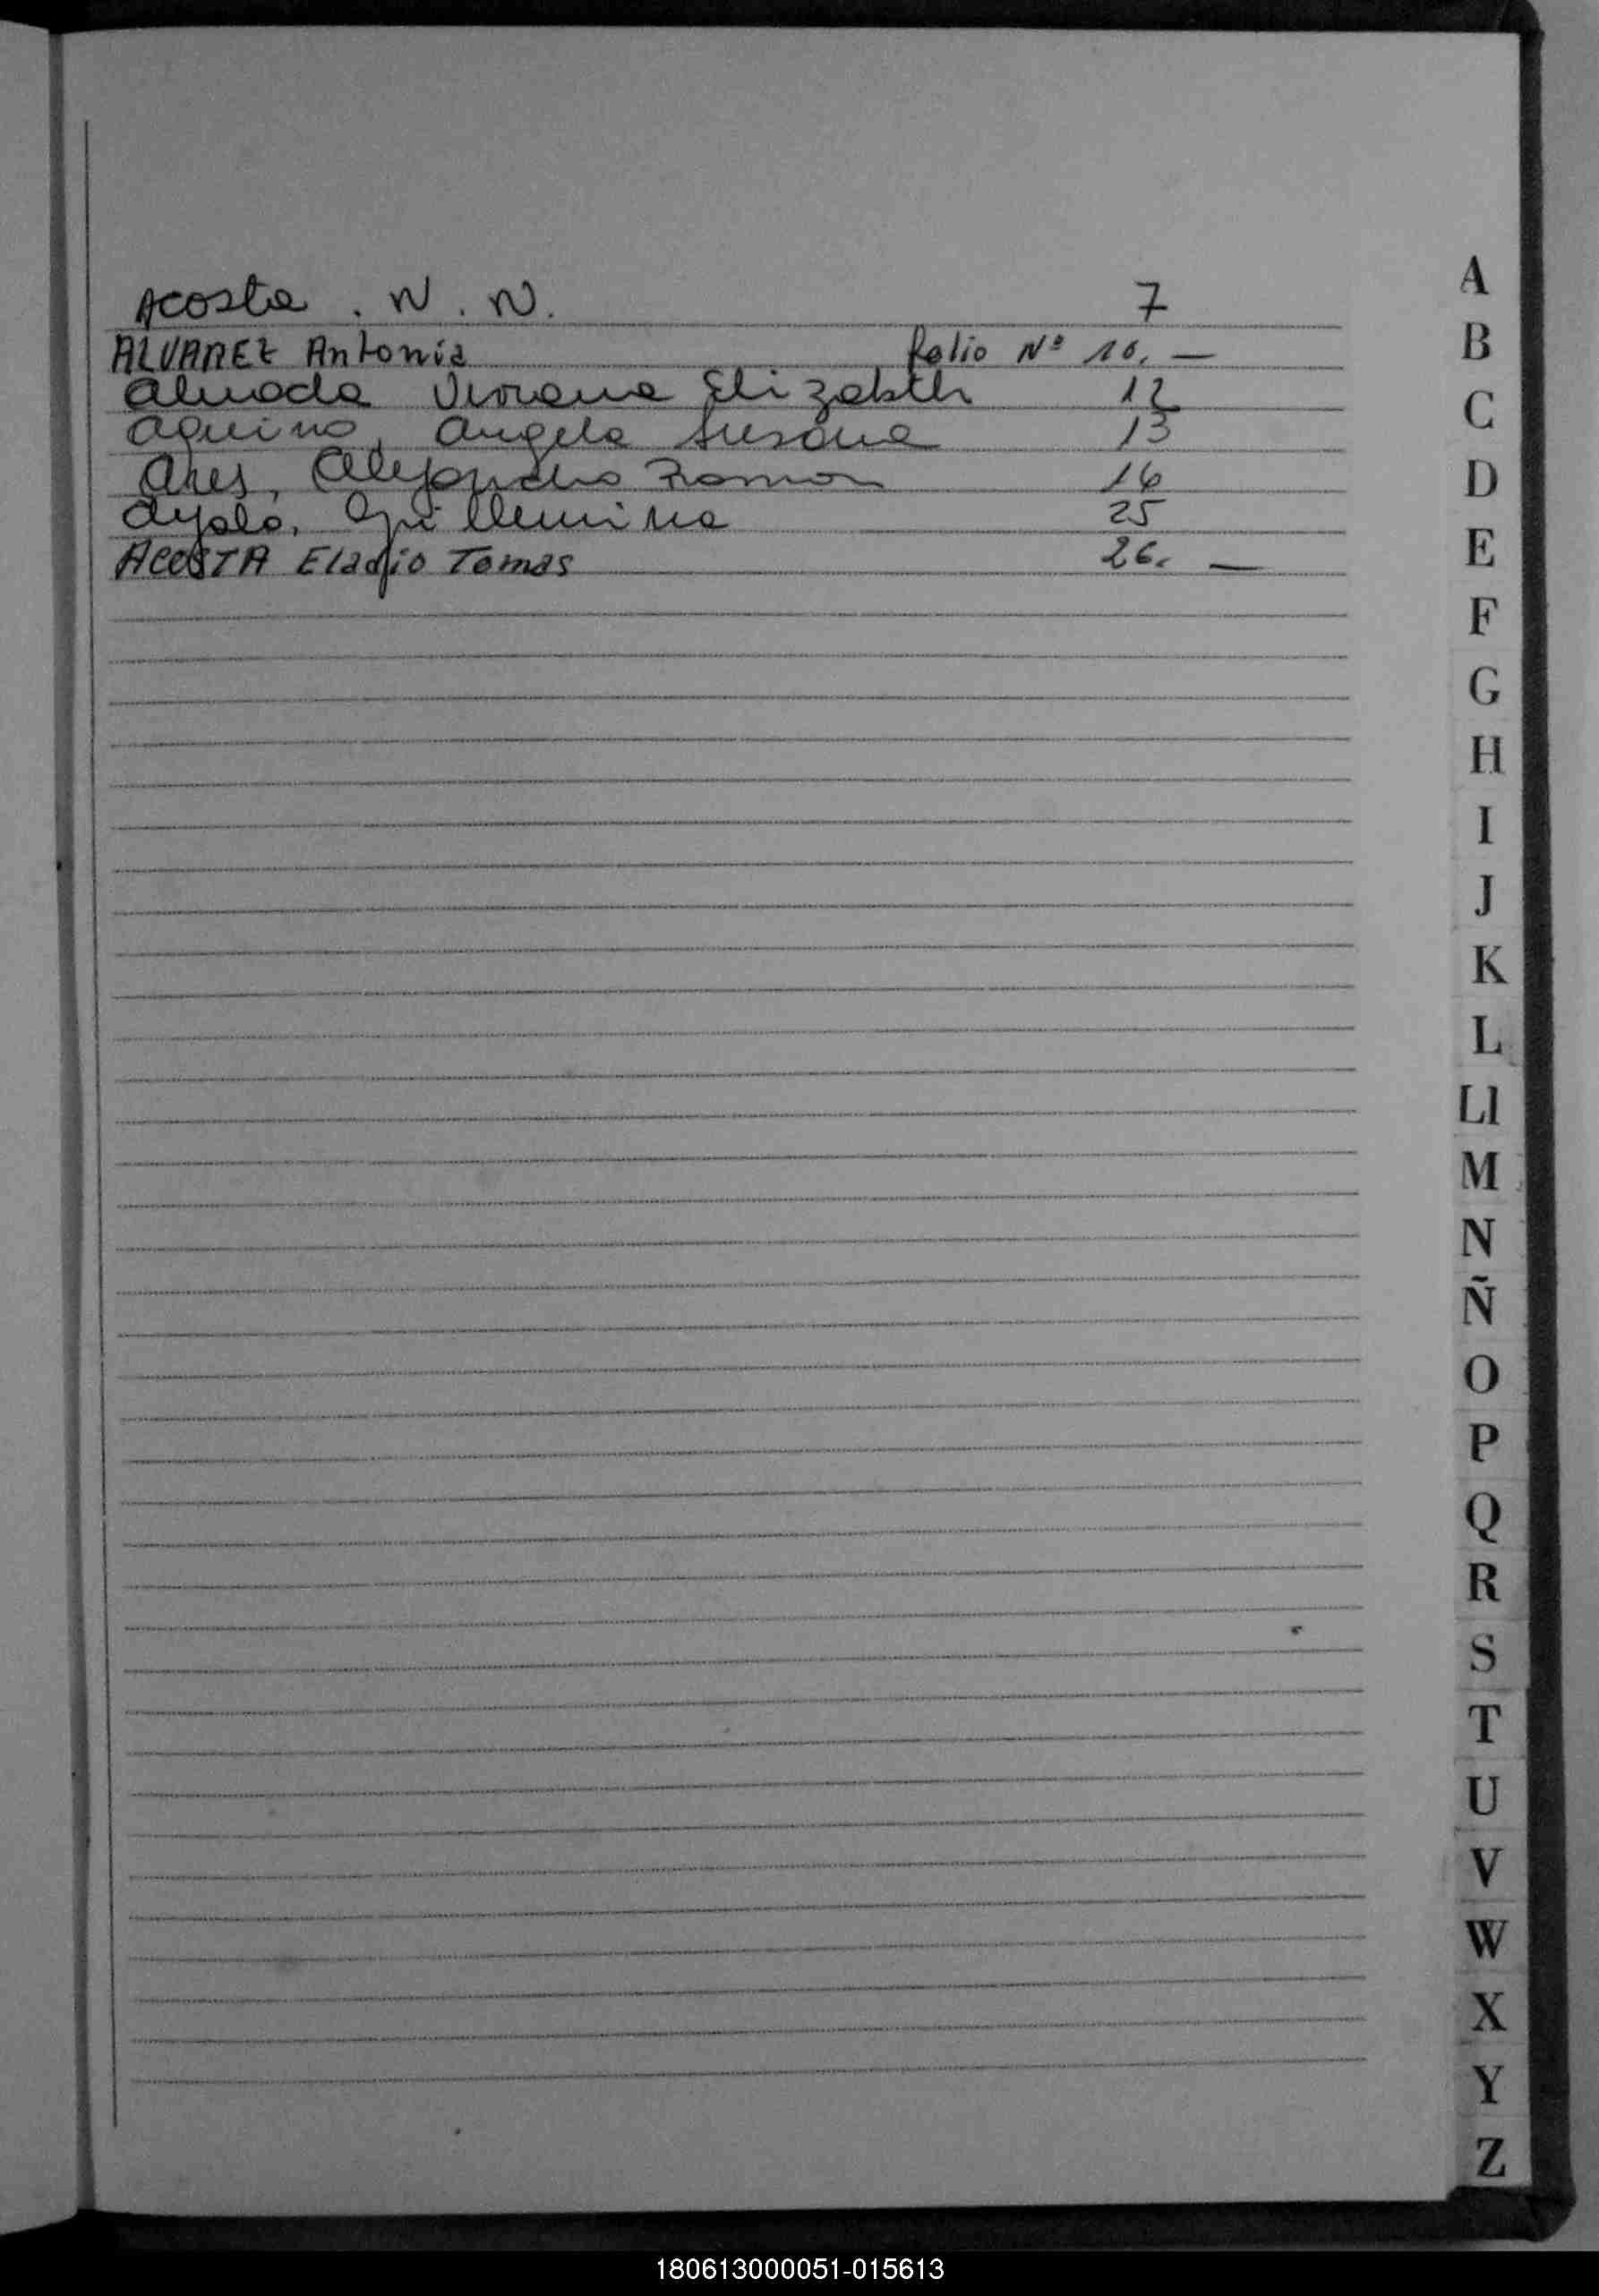 Acosta . N . N. 7
ALVAREZ Antonia folio Nº 10. —
Almada Viviana Elizabeth 12
Aquino, Angela Susana 13
Ares, Alejandro Ramon 16
Ayala, Guillermina 25
ACOSTA Eladio Tomas 26. —
A
B
C
D
E
F
G
H
I
J
K
L
Ll
M
N
Ñ
O
P
Q
R
S
T
U
V
W
X
Y
Z
180613000051-015613